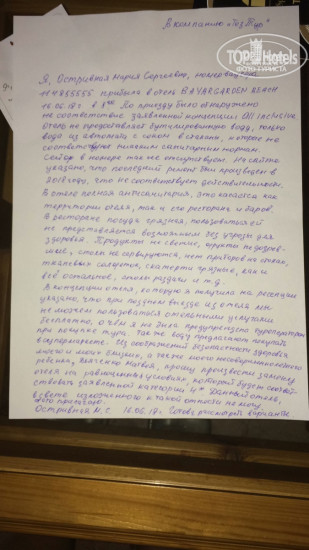 В компанию «ТезТур»
TOP Hotels
ФОТО ТУРИСТА
Я, Островная Мария Сергеевна, номер
114855555 прибыла в отель BAYARGARDEN BEACH
16.06.17г в 8 40. По приезду было обнаружено
не соответствие заявленной концепции All inclusive
Отель не предоставляет бутилированную воду, только
вода из автомата с соком в стаканы, которые не
соответствуют никаким санитарным нормам.
Сейф в номере так же отсутствует. На сайте
указано, что последний ремонт был произведен в
году, что не соответствует действительности.
В отеле полная антисанитария, это касается как
территории отеля, так и его ресторана и баров.
В ресторане посуда грязная, пользоваться ей
не представляется возможным без угрозы для
здоровья. Продукты не свежие, фрукты
столы не сервируются, нет приборов на столах,
тканевых салфеток, скатерти грязные, как и
всё остальное, и т.д.
В концепции отеля, которую я получила на рецепции
указано, что при позднем выезде из отеля мы
не можем пользоваться отельными услугами
бесплатно, о чём я не была предупреждена туроператором
при покупке тура. Так же воду предлагают покупать
в супермаркете. Из соображений безопасности здоровья
моего и моих близких, а также моего несовершеннолетнего
ребенка, прошу произвести замену
отеля на условиях, который будет соответ-
ствовать заявленной категории 4* Данный отель,
в свете изложенного к такой относиться не может
Островная М.С. 16.06.17. Готова рассмотреть варианты